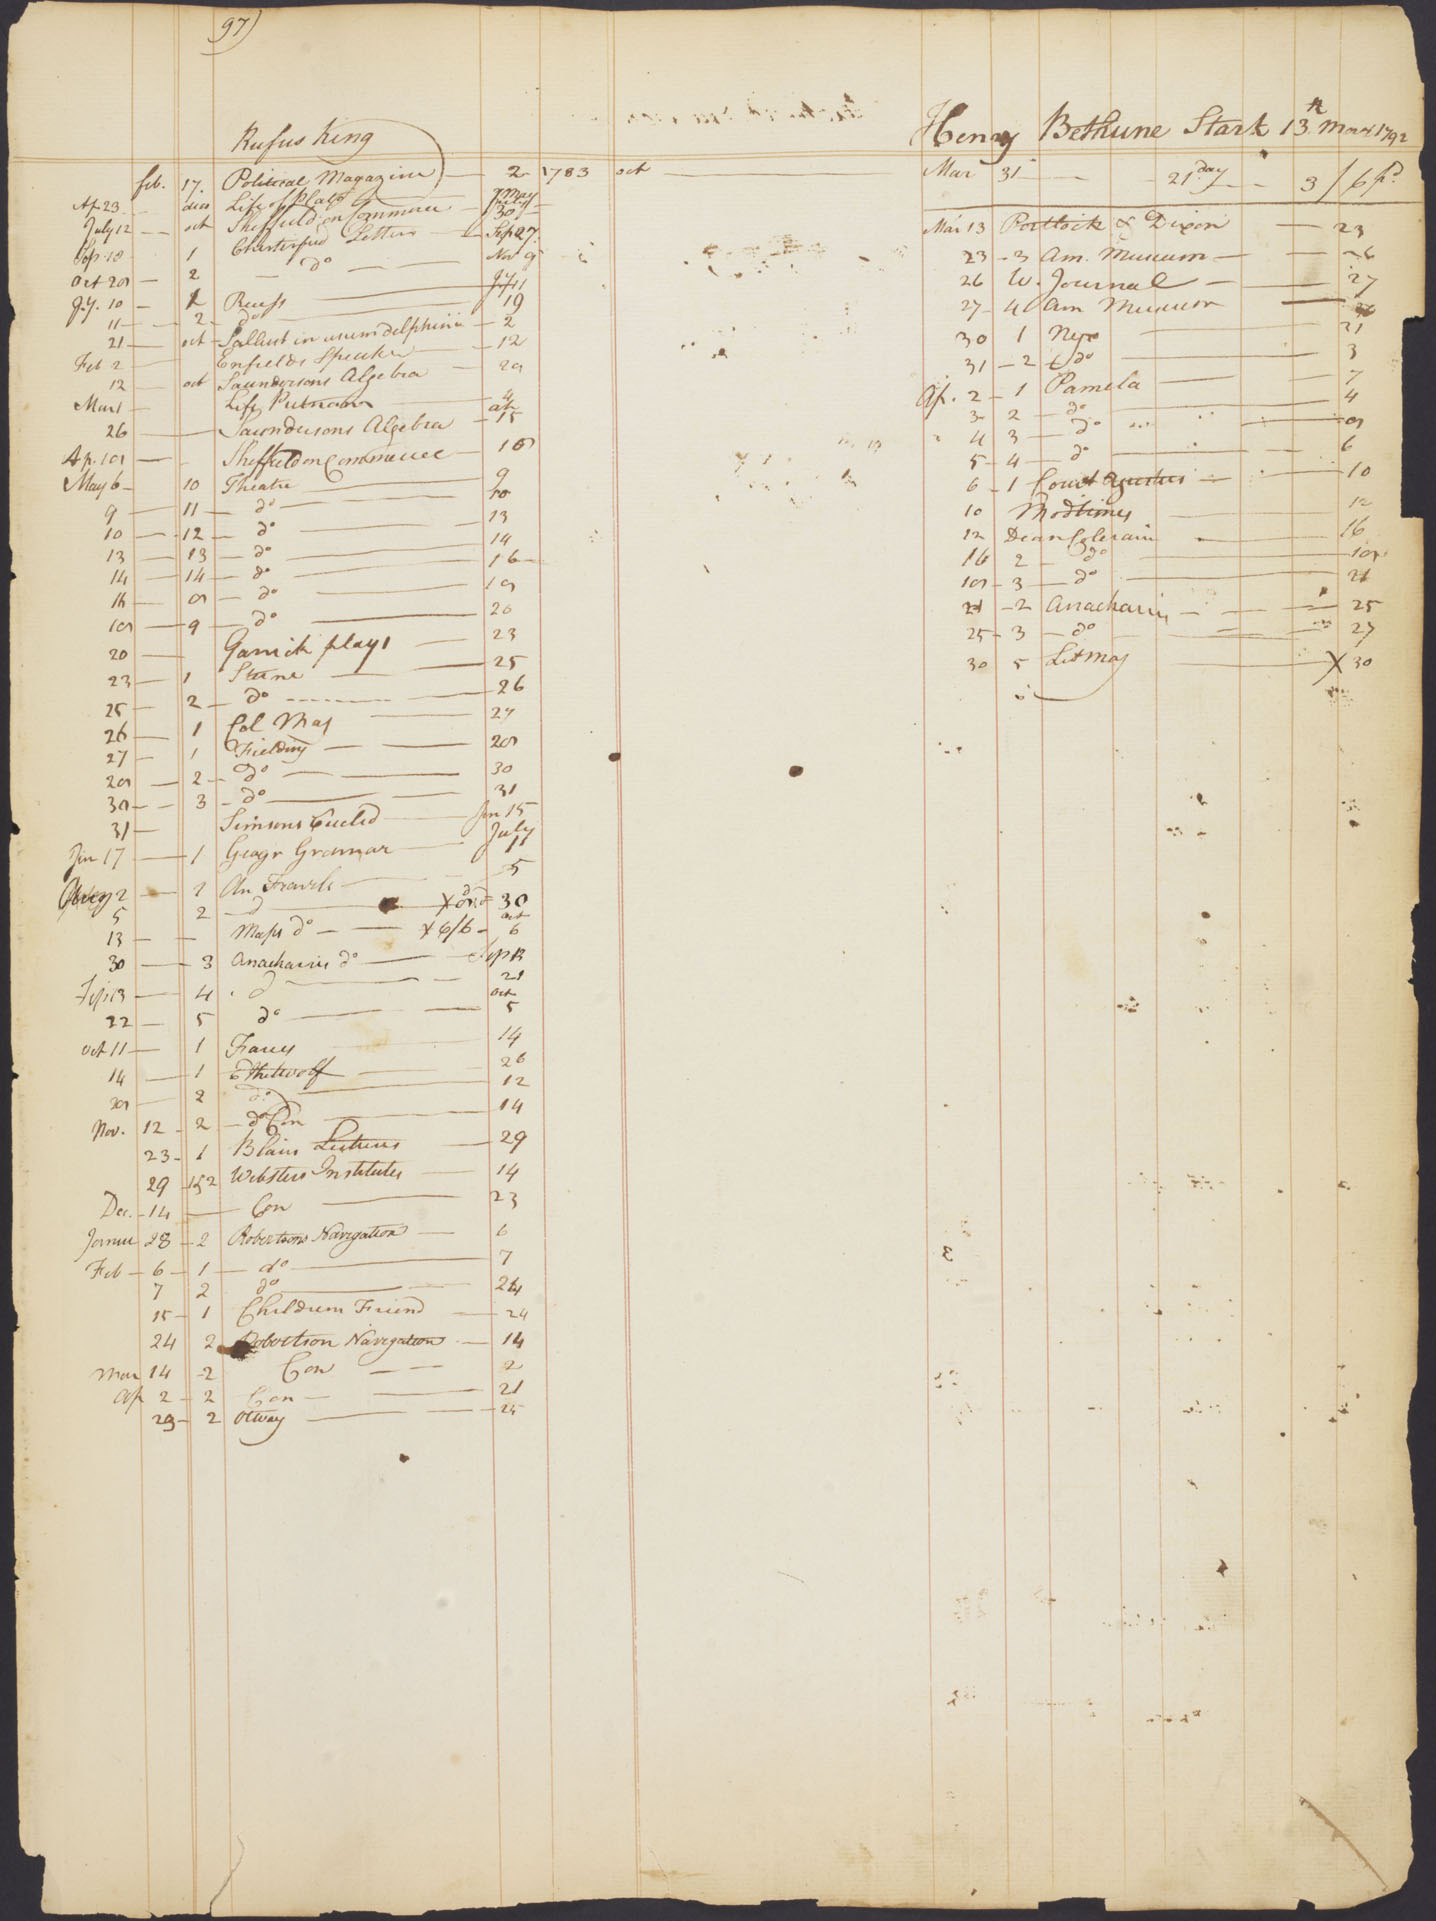 97)
Rufus King
feb. 17. Political Magazine 2 1783 oct
Ap 23 duo Life of Plays May
July 12 oct Sheffield on Commerce 30
Sep 18 1 Chesterfield Letters Sep 27
Oct 28 2 do Nov 9
Jy. 10 1 Ruefs Jy 11
11 2 do 19
21 oct Sallust in usum delphini 2
Feb 2 Enfields Speaker 12
12 oct Saundersons Algebra 28
Mar 1 Life Putnam
26 Saundersons Algebra 15
Ap. 18 Sheffield on Commerce 18
May 6 10 Theatre 9
9 11 do 10
10 12 do 13
13 13 do 14
14 14 do 16
16 8 do 18
18 9 do 20
20 Garrick plays 23
23 1 Sterne 25
25 2 do 26
26 1 Col Mag 27
27 1 Fielding 28
28 2 do 30
30 3 do 31
31 Simsons Euclid Jun 15
Jun 17 1 Geogr Grammar July 11
2 1 An Travels 5
5 2 d X 30
13 Maps do X 6/6 oct 6
30 3 Anacharsis do Sep 13
Sep 13 4 d 21
22 5 do oct 5
Oct 11 1 Fancy 14
14 1 Ethelwolf 26
28 2 do 12
Nov. 12 2 do Con 14
23 1 Blairs Lectures 29
29 152 Websters Institutes 14
Dec. 14 Con 23
Januu 28 2 Robertsons Navigation 6
Feb 6 1 do 7
7 2 do 24
15 1 Childrens Friend 24
24 2 Robertson Navigation 14
Mar 14 2 Con 2
Ap 2 2 Con 21
23 2 Otway 25
Henry Bethune Stark 13th March 1792
Mar 31 21 day 3/6 pd
Mar 13 Portlock & Dixon 23
23 3 Am. Museum 26
26 W. Journal 27
27 4 Am Museum
30 1 Nyr 31
31 2 do 3
Ap. 2 1 Pamela 7
3 2 do 4
4 3 do 8
5 4 do 6
6 1 Court Agustus 10
10 Mod times 12
12 Dean Colerain 16
16 2 do 18
18 3 do 21
21 2 Anacharsis 25
25 3 do 27
30 5 Lit Mag X 30